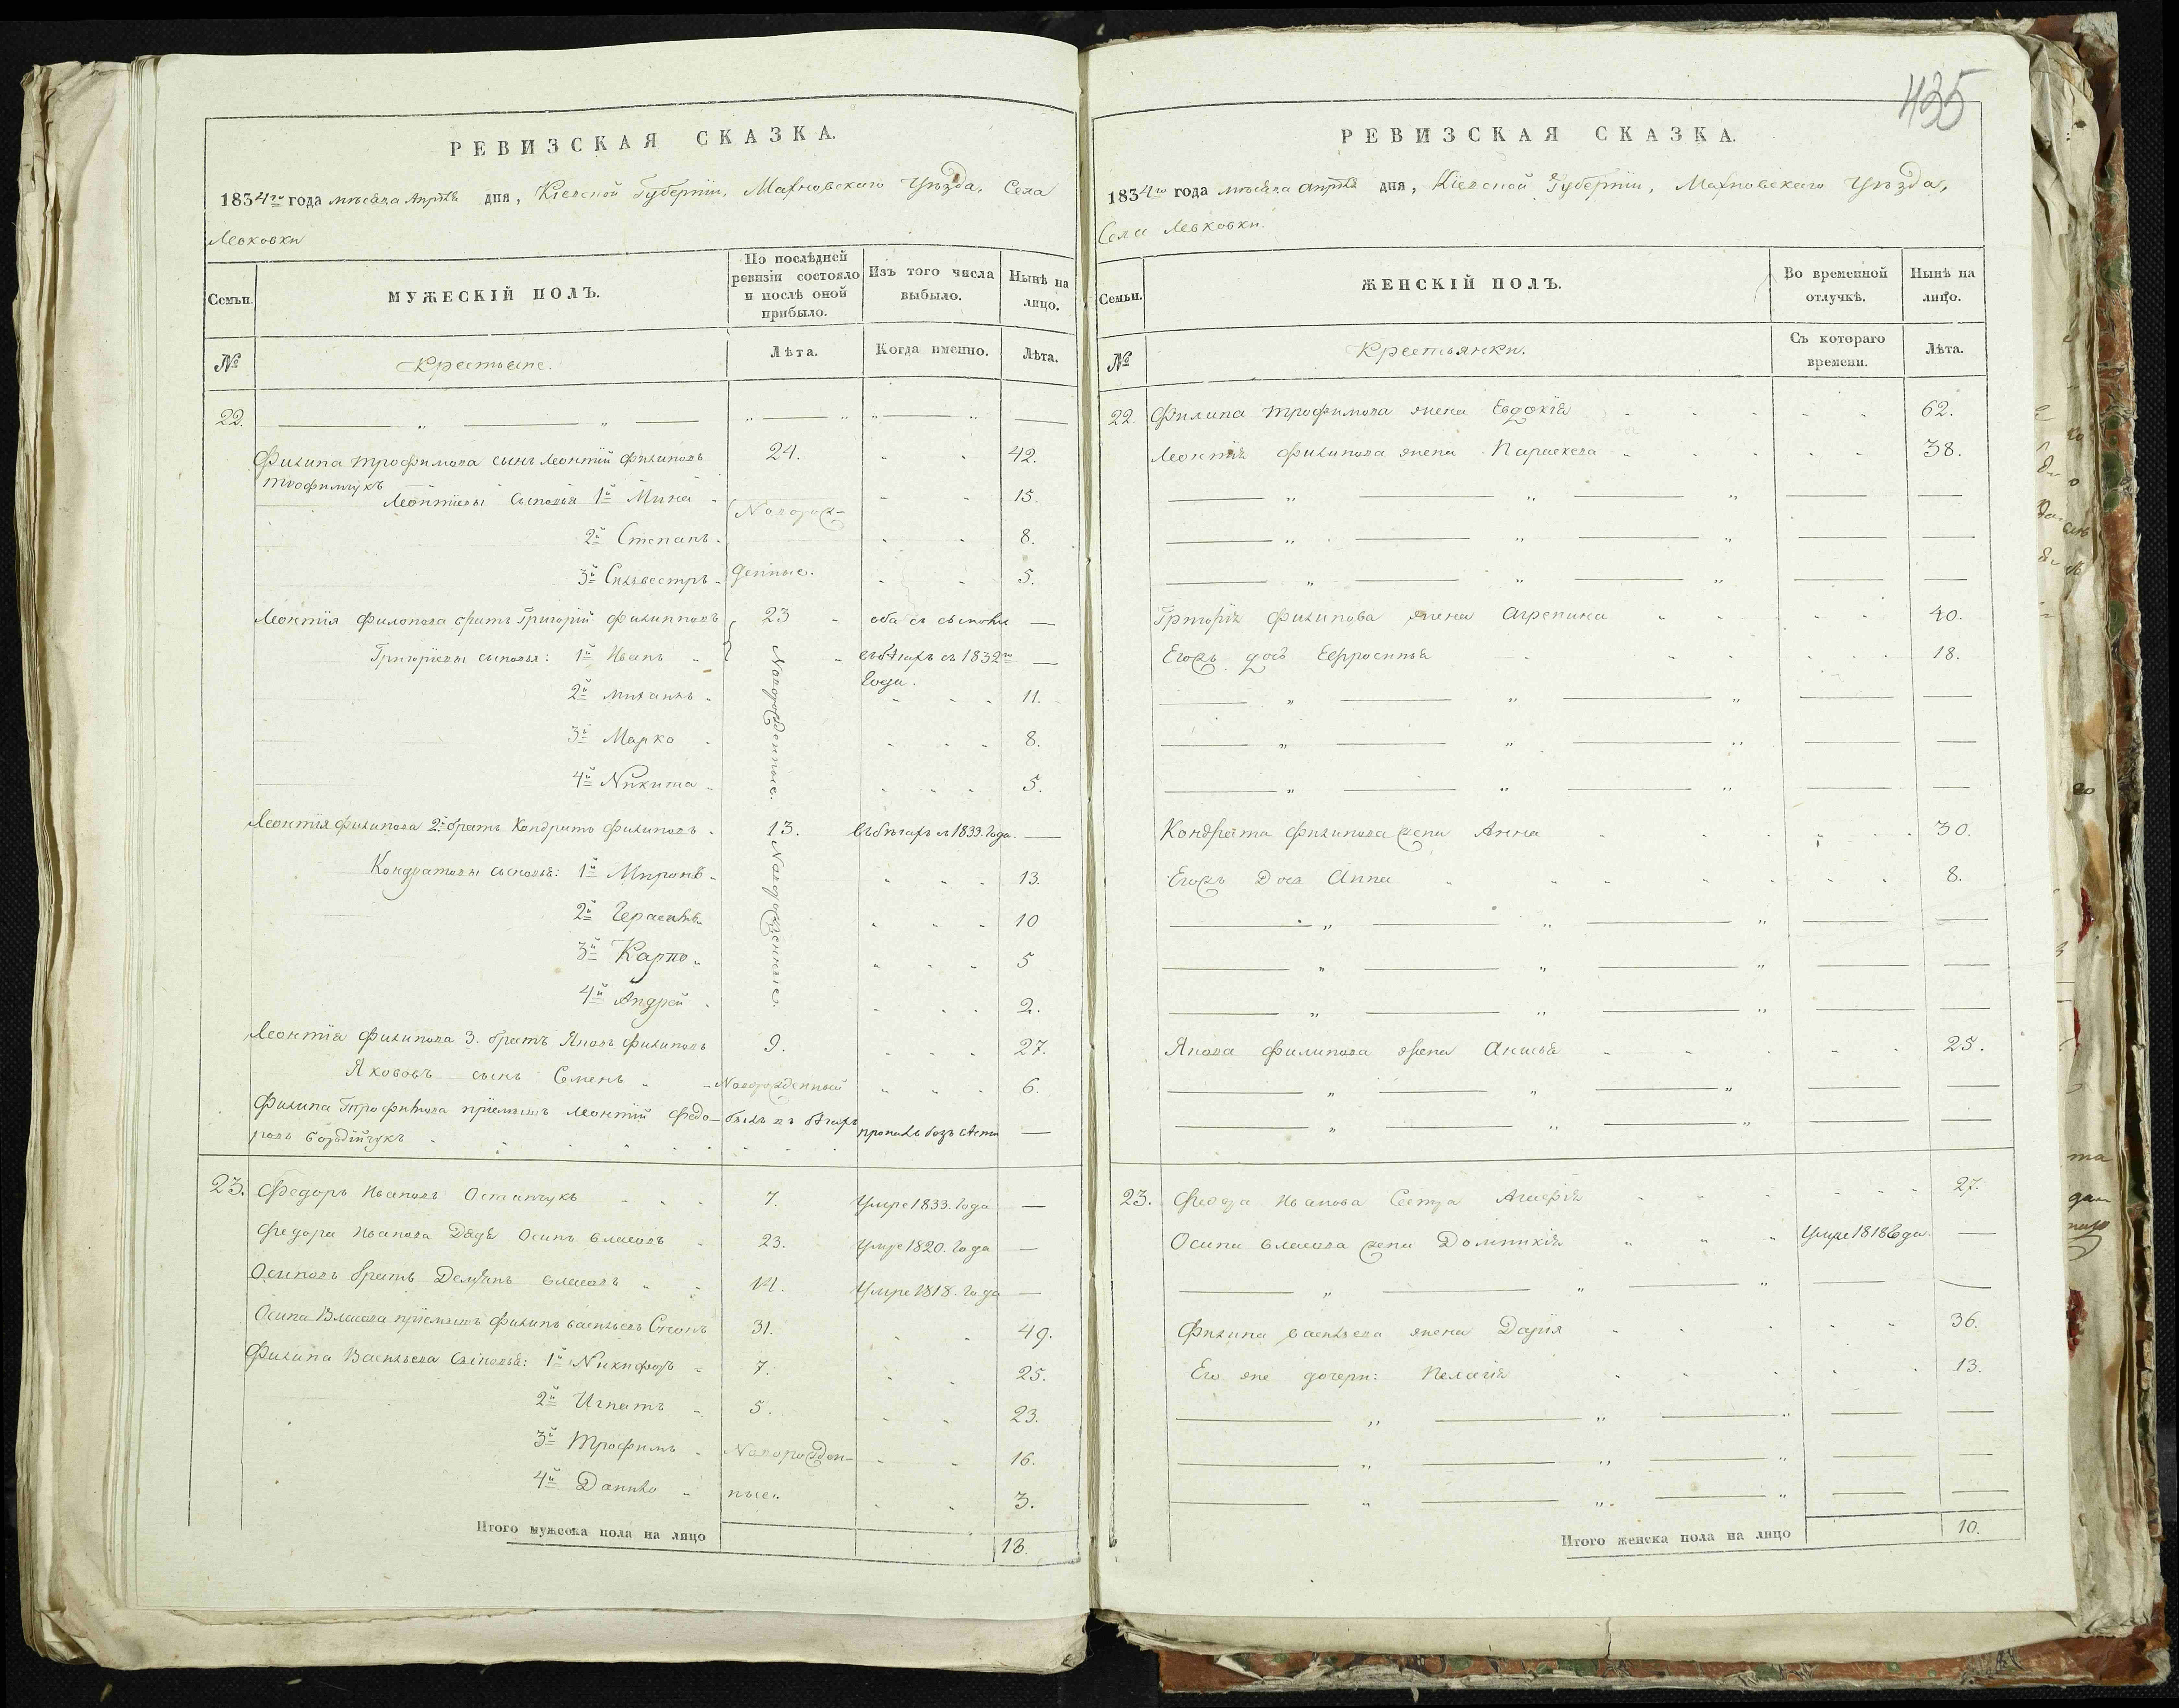 РЕВИЗСКАЯ СКАЗКА.
1834го года мѣсяца Апрѣля дня, Кіевской Губерніи, Махновскаго Уѣзда, Села
Левковки
Семьи. МУЖЕСКІЙ ПОЛЪ. По послѣдней ревизіи состояло и послѣ оной прибыло. Изъ того числа выбыло. Нынѣ на лицо.
№ Крестьяне. Лѣта. Когда именно. Лѣта.
22.
Филипа Трофимова сынъ Леонтій Филиповъ 24. 42.
Трофимчукъ
Леонтіевы сыновья 1й Мина 15
Новорож-
2й Степанъ 8.
3й Сильвестръ денные. 5.
Леонтія Филипова братъ Григорій Филипповъ 23 оба съ сыномъ —
Григоріевы сыновья: 1й Иванъ въ бѣгахъ съ 1832го —
года.
2й Михаилъ 11.
3й Марко 8.
4й Никита 5.
Новорожденные.
Леонтія Филипова 2й братъ Кондратъ Филиповъ 13. въ бѣгахъ съ 1833. года. —
Кондратовы сыновья: 1й Миронъ 13.
2й Герасимъ 10
3й Карпо 5
4й Андрей 2.
Новорожденные.
Леонтія Филипова 3. братъ Яковъ Филиповъ 9. 27.
Яковъ сынъ Семенъ Новорожденный 6.
Филипа Трофимова пріемышъ Леонтій Федо- былъ въ бѣгахъ
ровъ пропалъ безъ вѣсти —
23. Федоръ Ивановъ Остапчукъ 7. Умре 1833. года —
Федора Иванова Дядя Осипъ Власовъ 23. Умре 1820. года —
Осиповъ братъ Демьянъ Власовъ 14. Умре 1818. года —
Осипа Власова пріемышъ Филипъ Васильевъ 31. 49.
Филипа Васильева Сыновья: 1й Никифоръ 7. 25.
2й Игнатъ 5. 23.
3й Трофимъ Новорожден- 16.
4й Данило ные. 3.
Итого мужеска пола на лицо 18.
435
РЕВИЗСКАЯ СКАЗКА.
1834го года мѣсяца Апрѣля дня, Кіевской Губерніи, Махновскаго Уѣзда,
Села Левковки.
Семьи. ЖЕНСКІЙ ПОЛЪ. Во временной отлучкѣ. Нынѣ на лицо.
№ Крестьянки. Съ котораго времени. Лѣта.
22. Филипа Трофимова жена Евдокія 62.
Леонтія Филипова жена Параскева 38.
Григорія Филипова жена Агрепина 40.
Егожъ дочь Ефросинья 18.
Кондрата Филипова жена Анна 30.
Егожъ Доч Анна 8.
Якова Филипова жена Анисья 25.
23. Федора Иванова Сестра 27.
Осипа Власова жена Домникія Умре 1818 года. —
Филипа Васильева жена Дарія 36.
Его же дочери: Пелагія 13.
Итого женска пола на лицо 10.